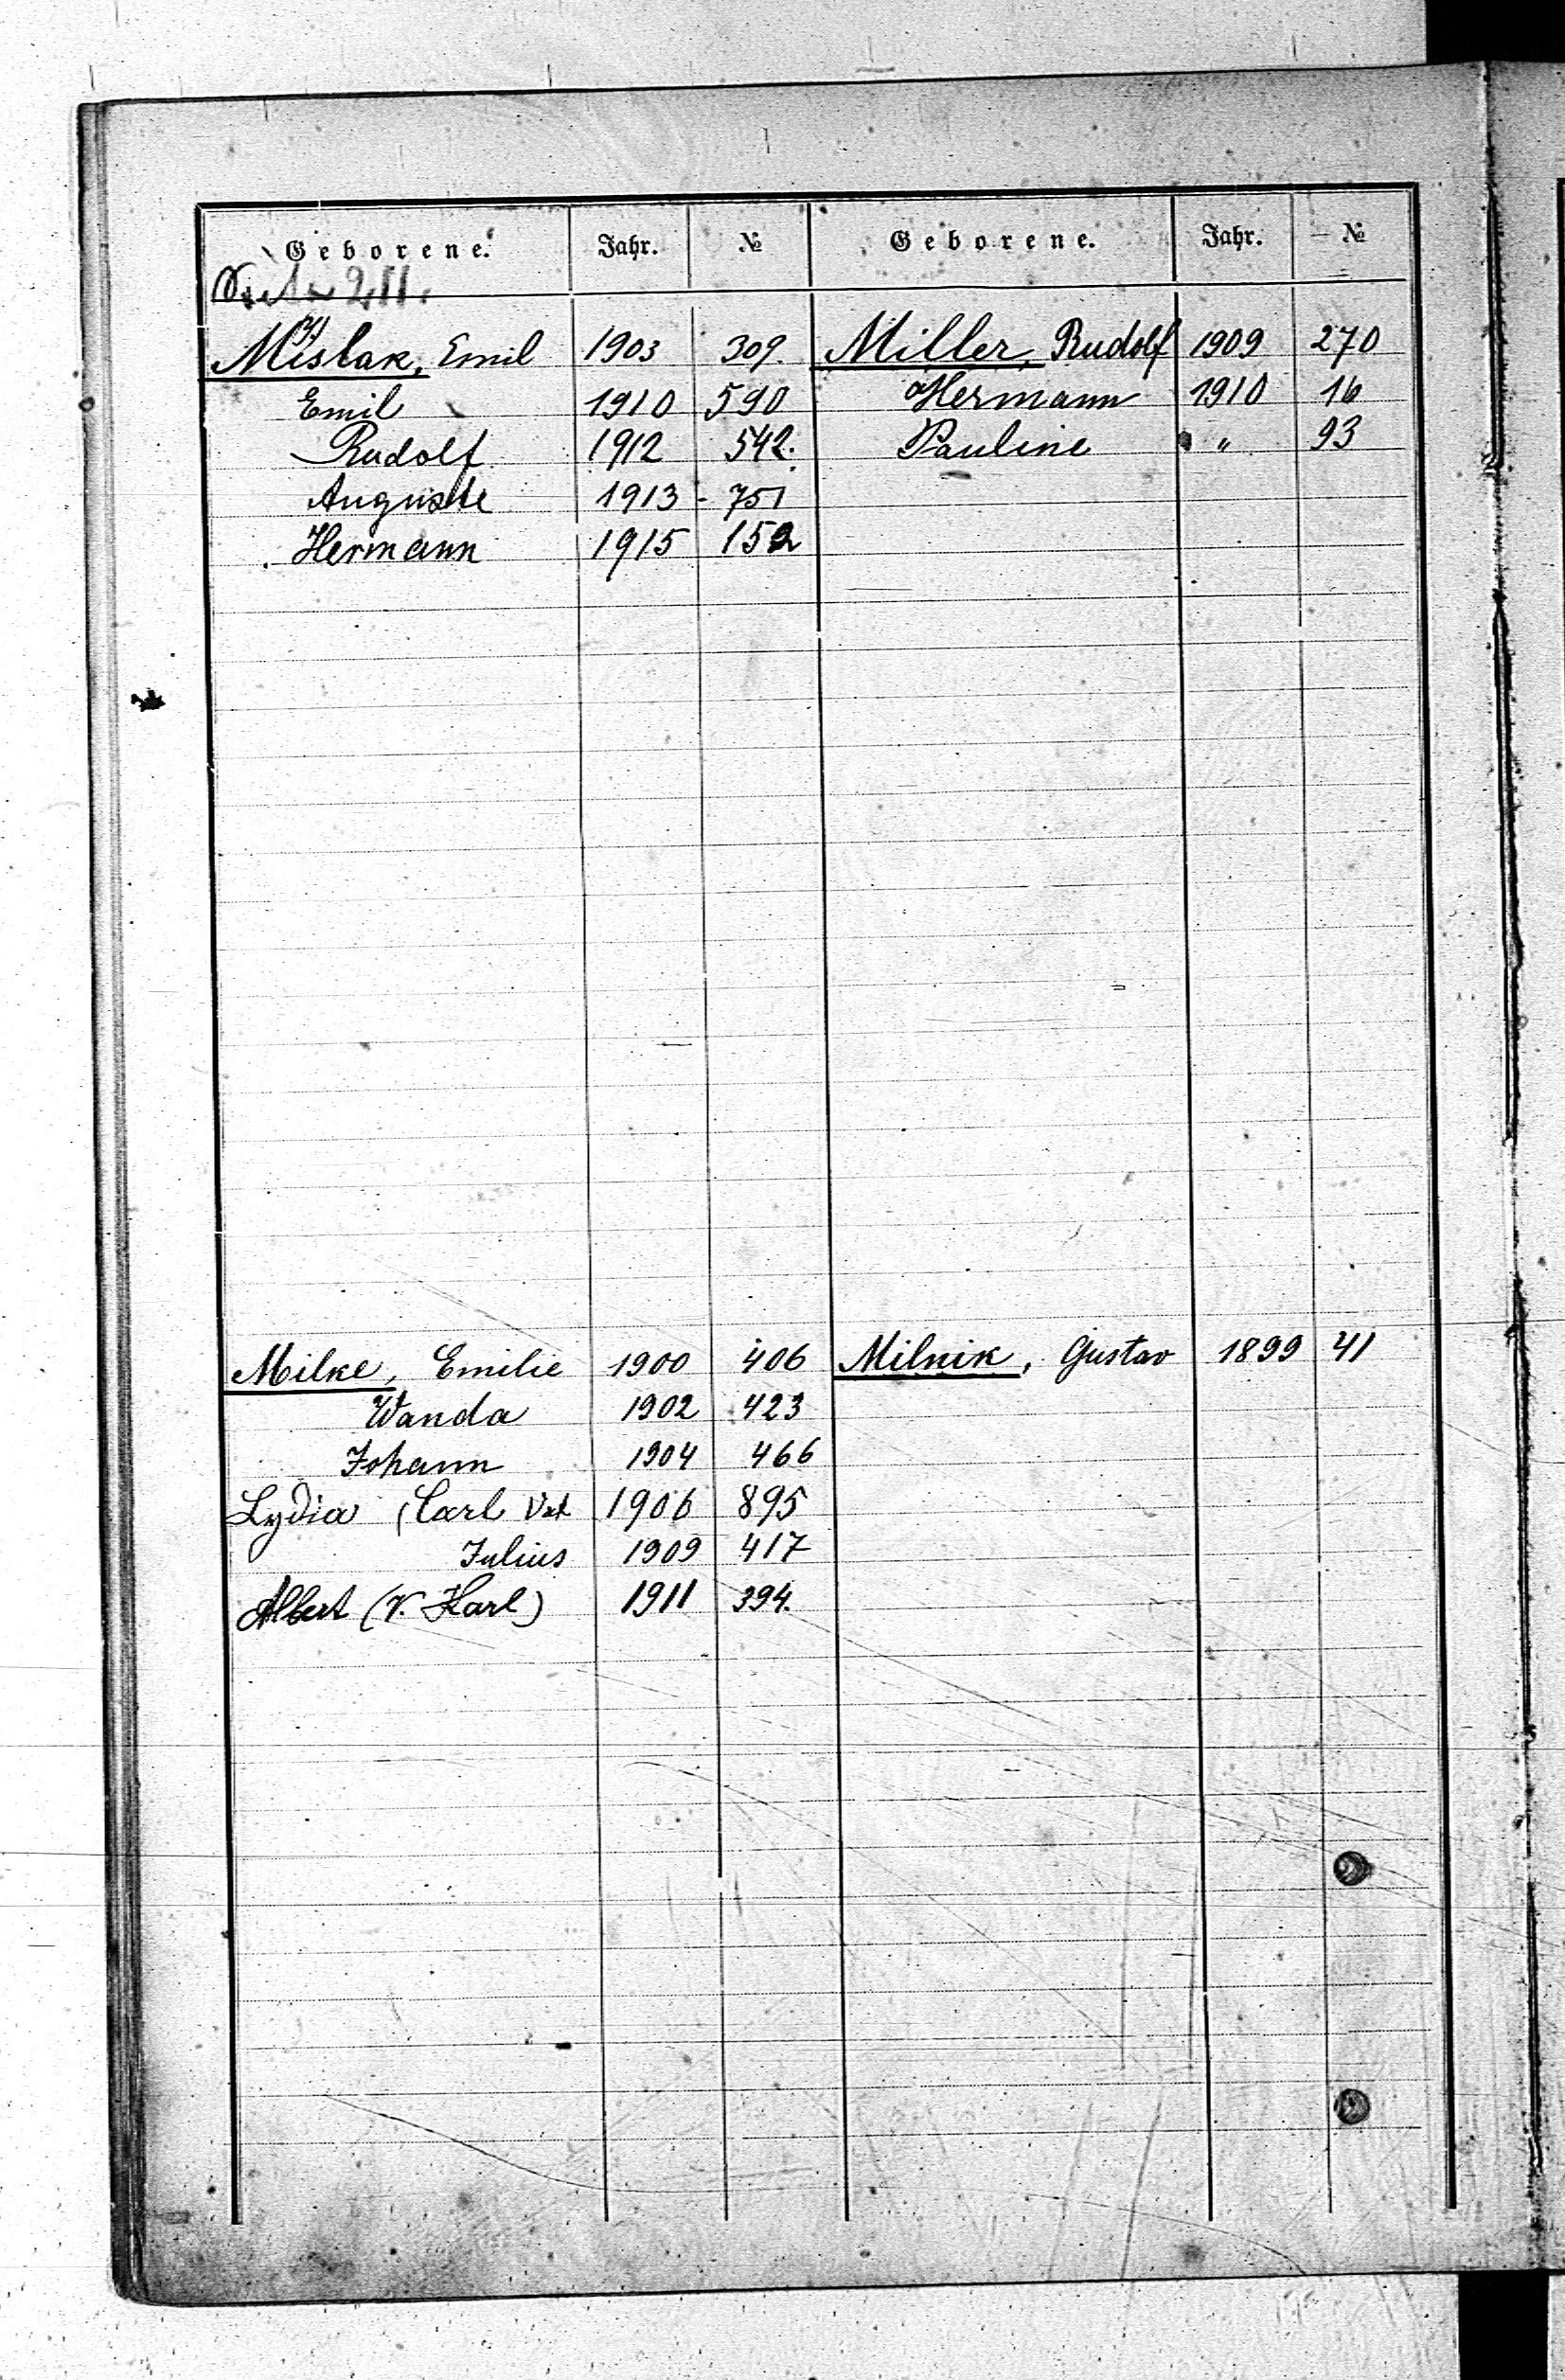 Geborene. Jahr. №
Mislak, Emil 1903 309.
Emil 1910 590
Rudolf 1912 542.
Auguste 1913 - 751
Hermann 1915 152
Milke, Emilie 1900 406
Wanda 1902 423
Johann 1904 466
Lydia (Carl Vat 1906 895
Julius 1909 417
Albert (V. Karl) 1911 394.
Geborene. Jahr. №
Miller, Rudolf 1909 270
Hermann 1910 16
Pauline " 93
Milnik, Gustav 1899 41